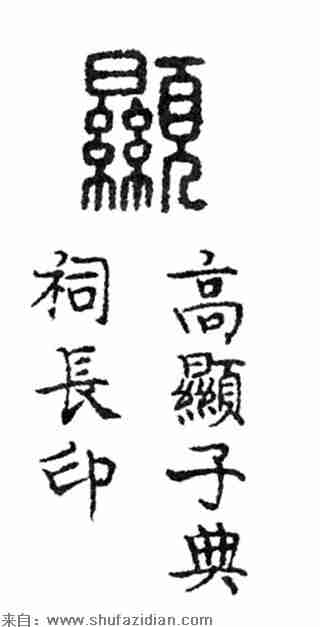 顯
高顯子典
祠長印
来自：www.shufazidian.com